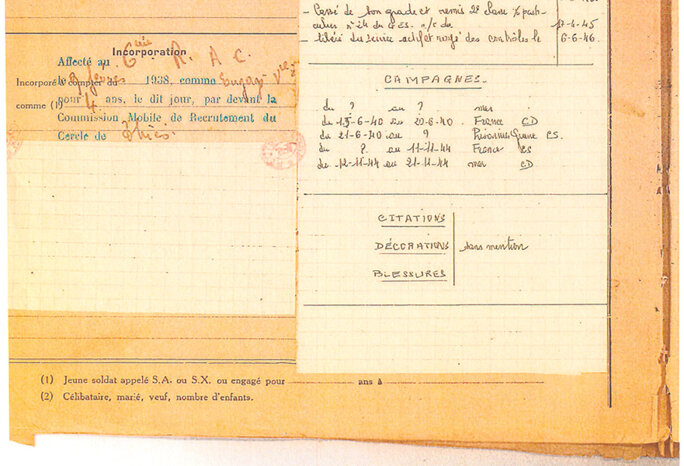 Incorporation
Affecté au 6ème R. A. C.
Incorporé à compter du
le 1938, comme Engagé Vre
comme (1)
pour 4 ans, le dit jour, par devant la
Commission Mobile de Recrutement du
Cercle de Thiès.
Cassé de son grade et remis 2e classe
17-4-45
libéré du service actif et rayé des contrôles le 6-6-46.
CAMPAGNES.
du ? au ? mer
du 15-6-40 au 20-6-40 France CD
du 21-6-40 au ? Prisonnier Guerre CS.
du ? au 11-11-44 France CS
du 12-11-44 au 21-11-44 mer CD
CITATIONS
DÉCORATIONS sans mention
BLESSURES
(1) Jeune soldat appelé S.A. ou S.X. ou engagé pour ans à
(2) Célibataire, marié, veuf, nombre d'enfants.